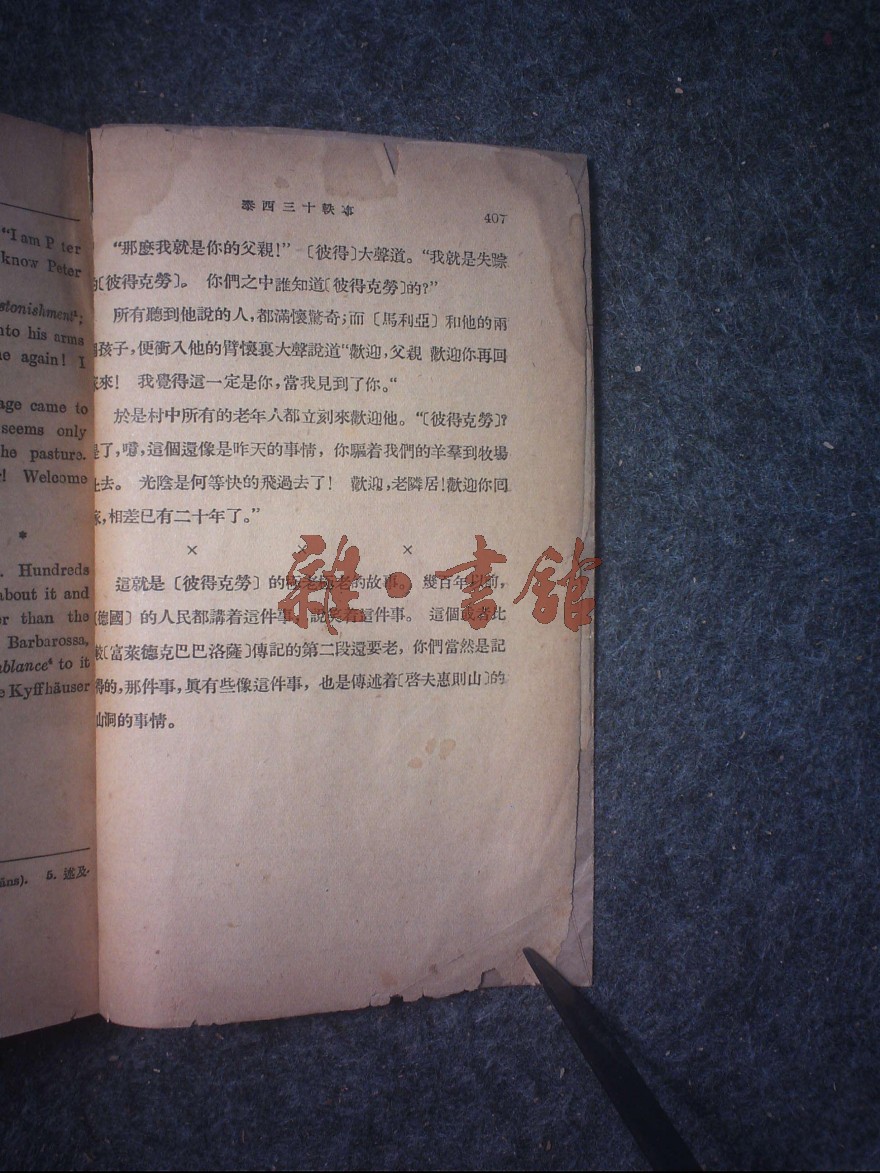 "I am P ter
know Peter
stonishment¹;
nto his arms
e again! I
age came to
seems only
he pasture.
! Welcome
*
. Hundreds
about it and
r than the
Barbarossa,
blance⁴ to it
e Kyffhäuser
äns). 5. 述及
泰西三十軼事
407
“那麼我就是你的父親!” 〔彼得〕大聲道。“我就是失踪
的〔彼得克勞〕。 你們之中誰知道〔彼得克勞〕的?”
所有聽到他說的人,都滿懷驚奇;而〔馬利亞〕和他的兩
個孩子,便衝入他的臂懷裏大聲說道“歡迎,父親 歡迎你再回
家來! 我覺得這一定是你,當我見到了你。“
於是村中所有的老年人都立刻來歡迎他。“〔彼得克勞〕?
是了,嗜,這個還像是昨天的事情,你驅着我們的羊羣到牧場
上去。 光陰是何等快的飛過去了! 歡迎,老隣居!歡迎你回
家,相差已有二十年了。”
× × ×
這就是〔彼得克勞〕的極老極老的故事。 幾百年以前,
〔德國〕的人民都講着這件事,說笑着這件事。 這個或者比
〔富萊德克巴巴洛薩〕傳記的第二段還要老,你們當然是記
得的,那件事,眞有些像這件事,也是傳述着〔啓夫惠則山〕的
山洞的事情。
雜·書館